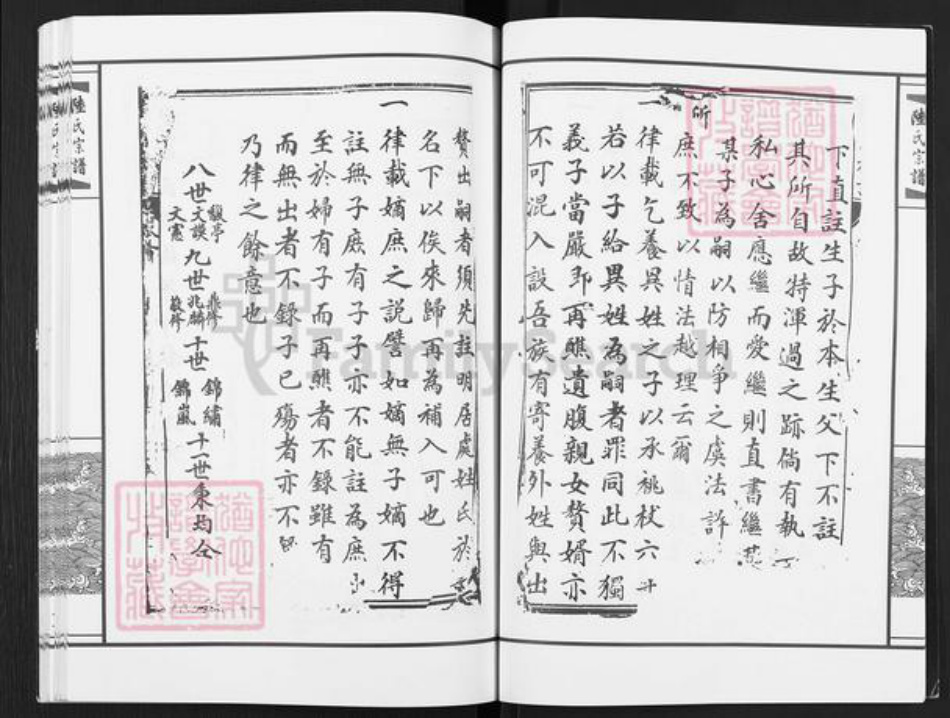 陸氏宗譜
下直註生子於本生父下不註
其所自故特渾過之跡倘有執
私心舍應繼而愛繼則直書繼
某子為嗣以防相爭之虞法許
所
庶不致以情法越理云爾
一律載乞養異姓之子以承祧杖六十
若以子給異姓為嗣者罪同此不獨
義子當嚴即再醮遺腹親女贅婿亦
不可混入設吾族有寄養外姓與出
贅出嗣者須先註明居處姓氏於
名下以俟來歸再為補入可也
一律載嫡庶之說譬如嫡無子嫡不得
註無子庶有子子亦不能註為庶出
至於婦有子而再醮者不錄雖有
而無出者不錄子已殤者亦不
乃律之餘意也
八世文謨文憲九世兆麟敬修十世錦繡錦嵐十一世秉均仝
陸氏宗譜
FamilySearch